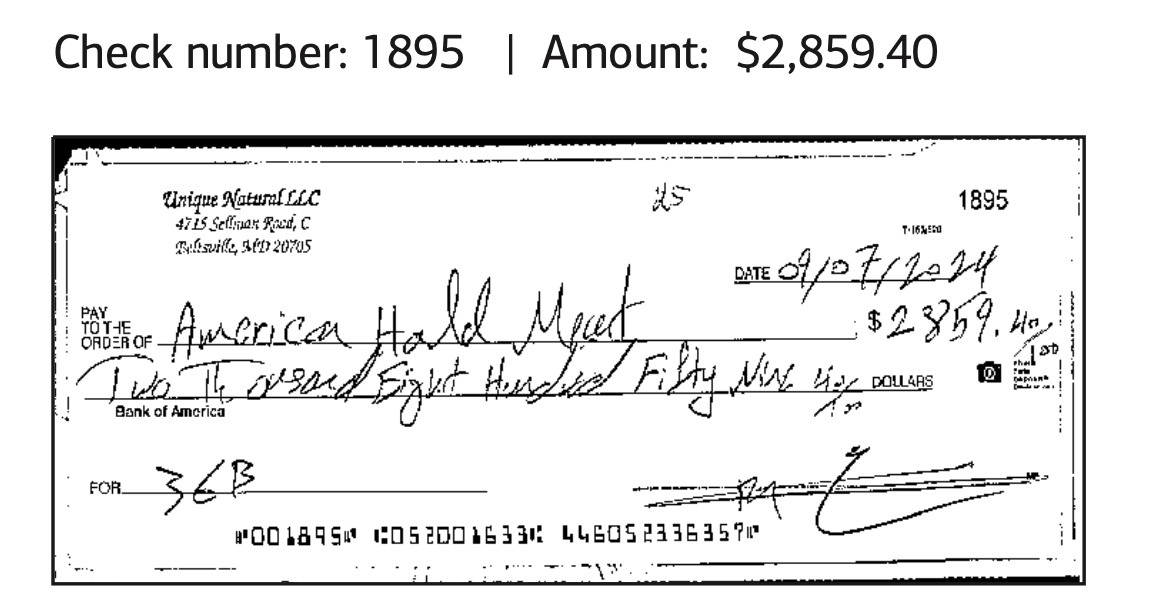 Check number: 1895 | Amount: $2,859.40
Unique Natural LLC
4715 Sellman Road, C
Beltsville, MD 20705
25
1895
DATE 09/07/2024
PAY TO THE ORDER OF American Hald Meat $2859. 40/100
Two Thousand Eight Hundred Fifty Nine 40/100 DOLLARS
Bank of America
FOR 36B
⑈001895⑈ ⑆052001633⑆ 446052336357⑈